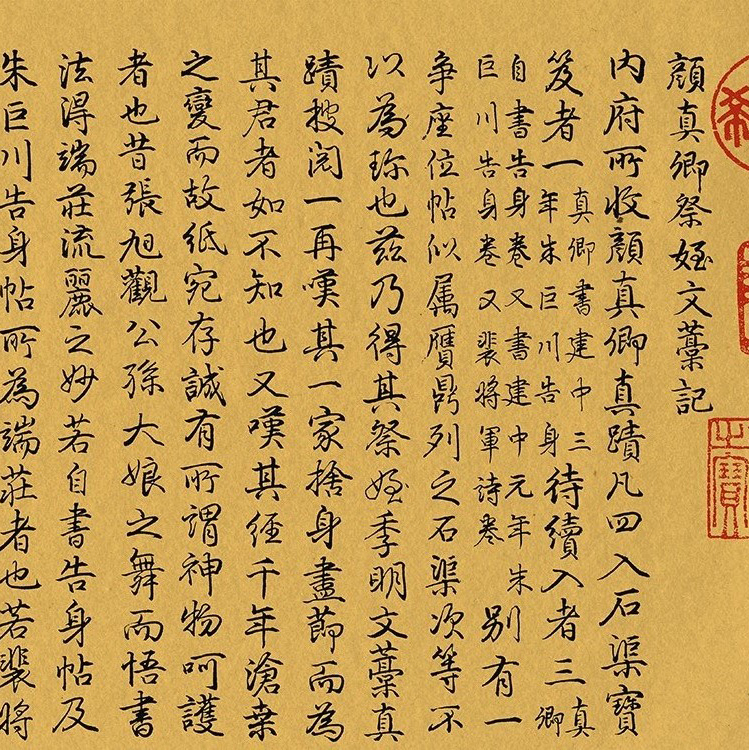 顔真卿祭姪文藁記
内府所收顔真卿真蹟凡四入石渠寶
笈者一真卿書建中三年朱巨川告身待續入者三真卿
自書告身卷又書建中元年朱巨川告身卷又裴将軍詩卷別有一
争座位帖似属贋鼎列之石渠次等不
以為珎也兹乃得其祭姪季明文藁真
蹟披閲一再嘆其一家捨身盡節而為
其君者如不知也又嘆其經千年滄桑
之變而故紙宛存誠有所謂神物呵護
者也昔張旭觀公孫大娘之舞而悟書
法得端莊流麗之妙若自書告身帖及
朱巨川告身帖所為端莊者也若裴将
之寶